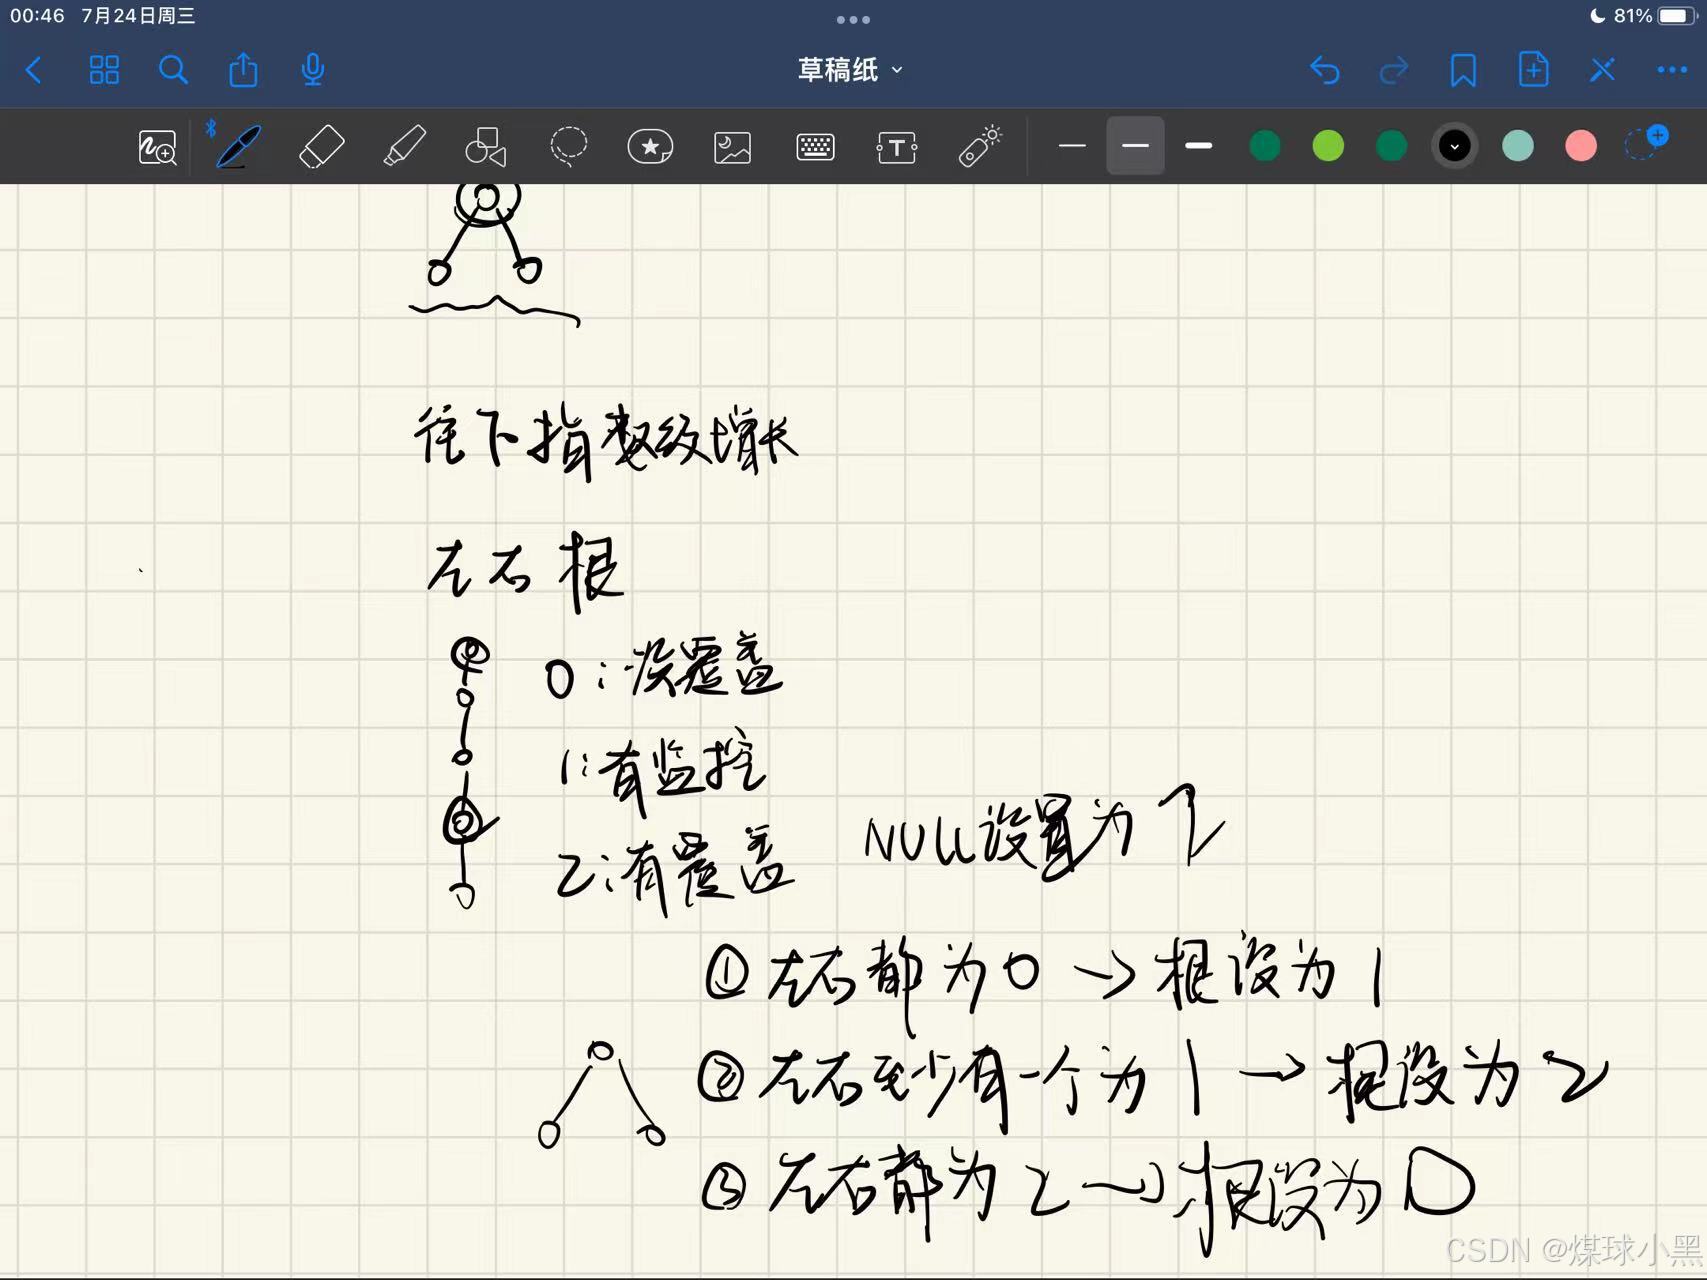 00:46 7月24日周三
81%
草稿纸
往下指数级增长
左右根
0:没覆盖
1:有监控
2:有覆盖
NULL设置为2
①左右都为0→根设为1
②左右至少有一个为1→根设为2
③左右都为2→根设为0
CSDN @煤球小黑